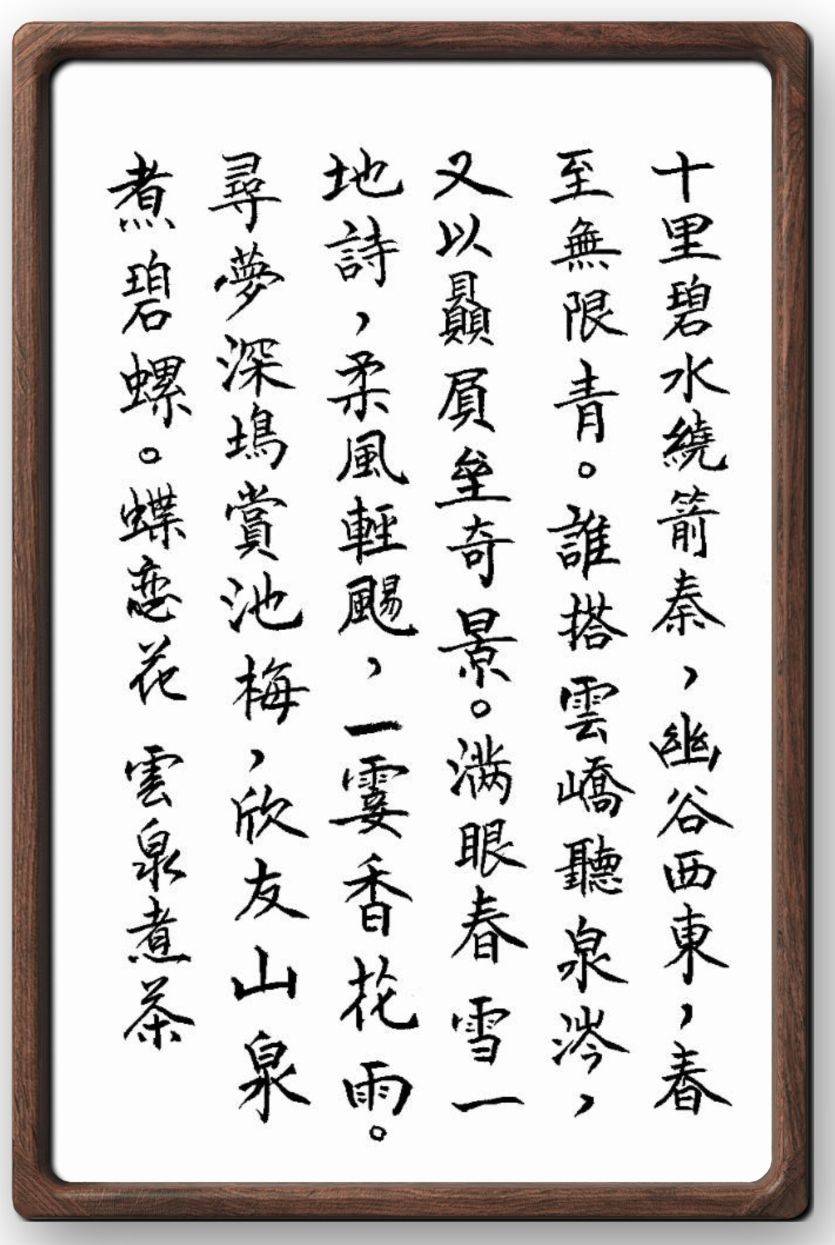 十里碧水繞箭秦，幽谷西東，春
至無限青。誰搭雲嶠聽泉涔，
又以贔屓垒奇景。满眼春雪一
地詩，柔風輕颺，一霎香花雨。
尋夢深塢賞池梅，欣友山泉
煮碧螺。蝶恋花 雲泉煮茶